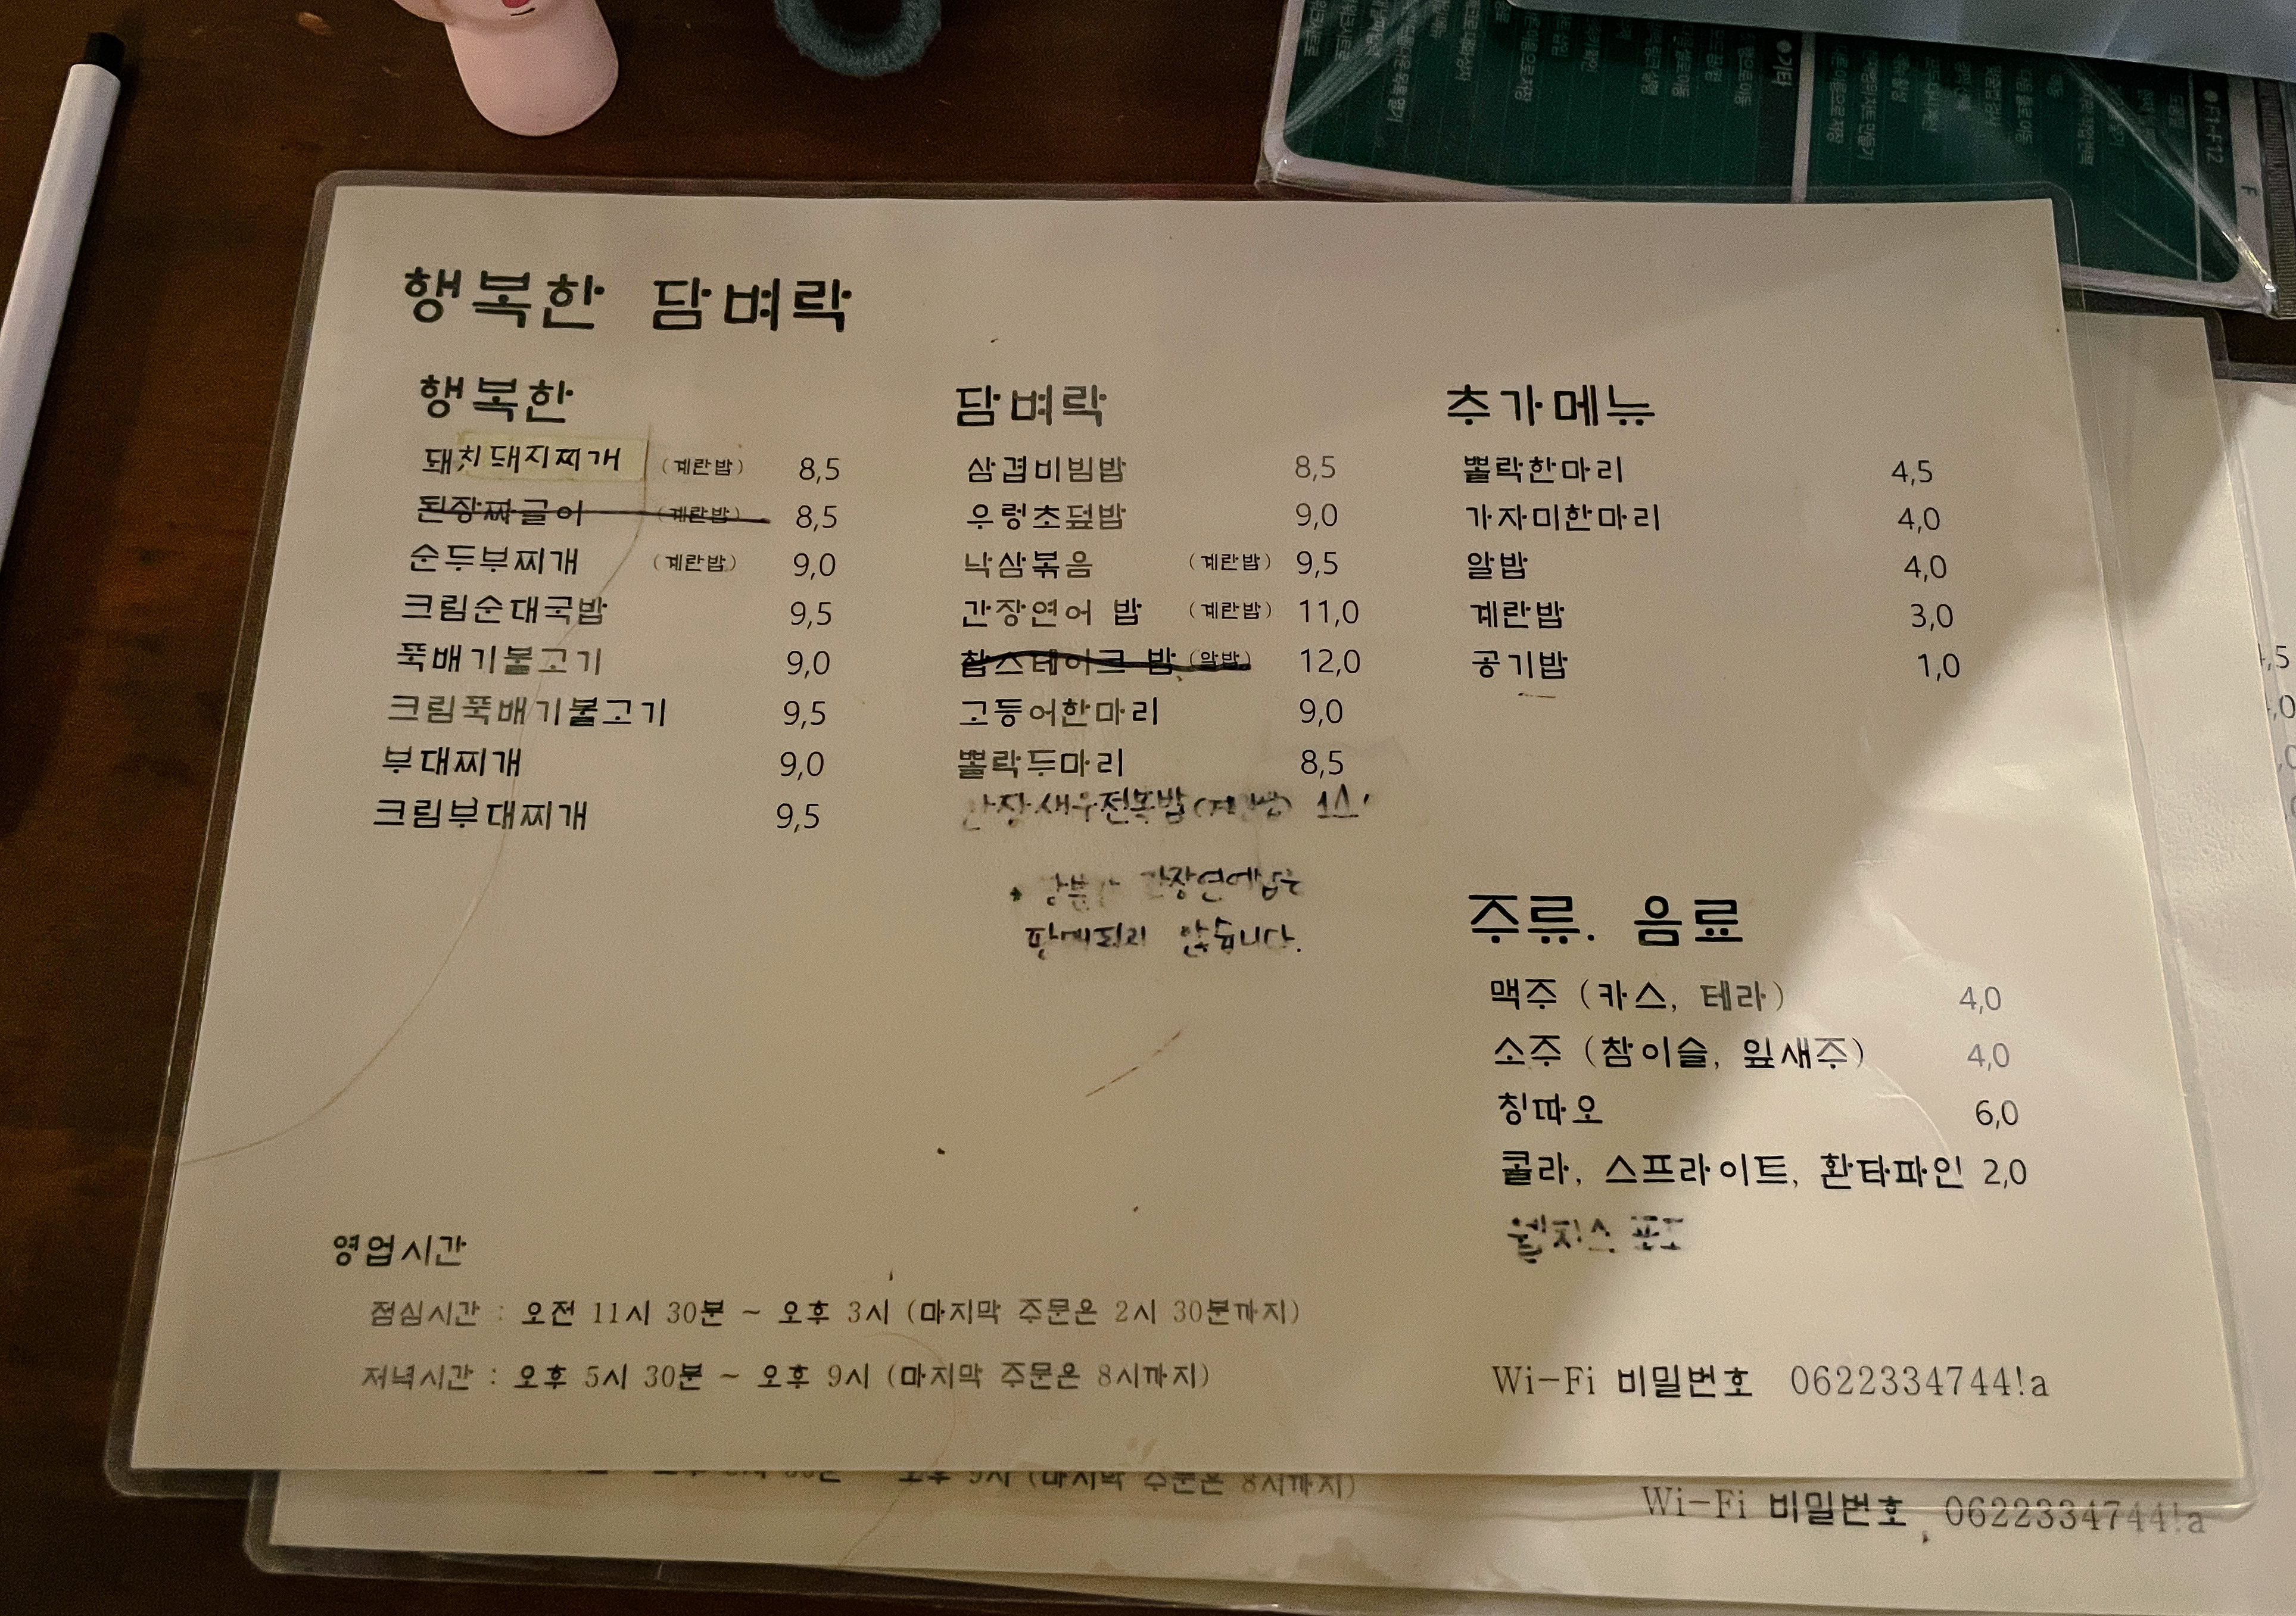 행복한 담벼락
행복한
돼지돼지찌개 (계란밥) 8,5
된장짜글이 (계란밥) 8,5
순두부찌개 (계란밥) 9,0
크림순대국밥 9,5
뚝배기불고기 9,0
크림뚝배기불고기 9,5
부대찌개 9,0
크림부대찌개 9,5
담벼락
삼겹비빔밥 8,5
우렁초덮밥 9,0
낙삼볶음 (계란밥) 9,5
간장연어 밥 (계란밥) 11,0
찹스테이크 밥 (알밥) 12,0
고등어한마리 9,0
뽈락두마리 8,5
간장새우전복밥 (계란밥)
간장연어밥은
판매되지 않습니다.
추가메뉴
뽈락한마리 4,5
가자미한마리 4,0
알밥 4,0
계란밥 3,0
공기밥 1,0
주류. 음료
맥주 (카스, 테라) 4,0
소주 (참이슬, 잎새주) 4,0
칭따오 6,0
콜라, 스프라이트, 환타파인 2,0
웰치스 포도
영업시간
점심시간 : 오전 11시 30분 ~ 오후 3시 (마지막 주문은 2시 30분까지)
저녁시간 : 오후 5시 30분 ~ 오후 9시 (마지막 주문은 8시까지)
Wi-Fi 비밀번호 0622334744!a
오후 9시 (마지막 주문은 8시까지)
Wi-Fi 비밀번호 0622334744!a
●기타
●F1~F12